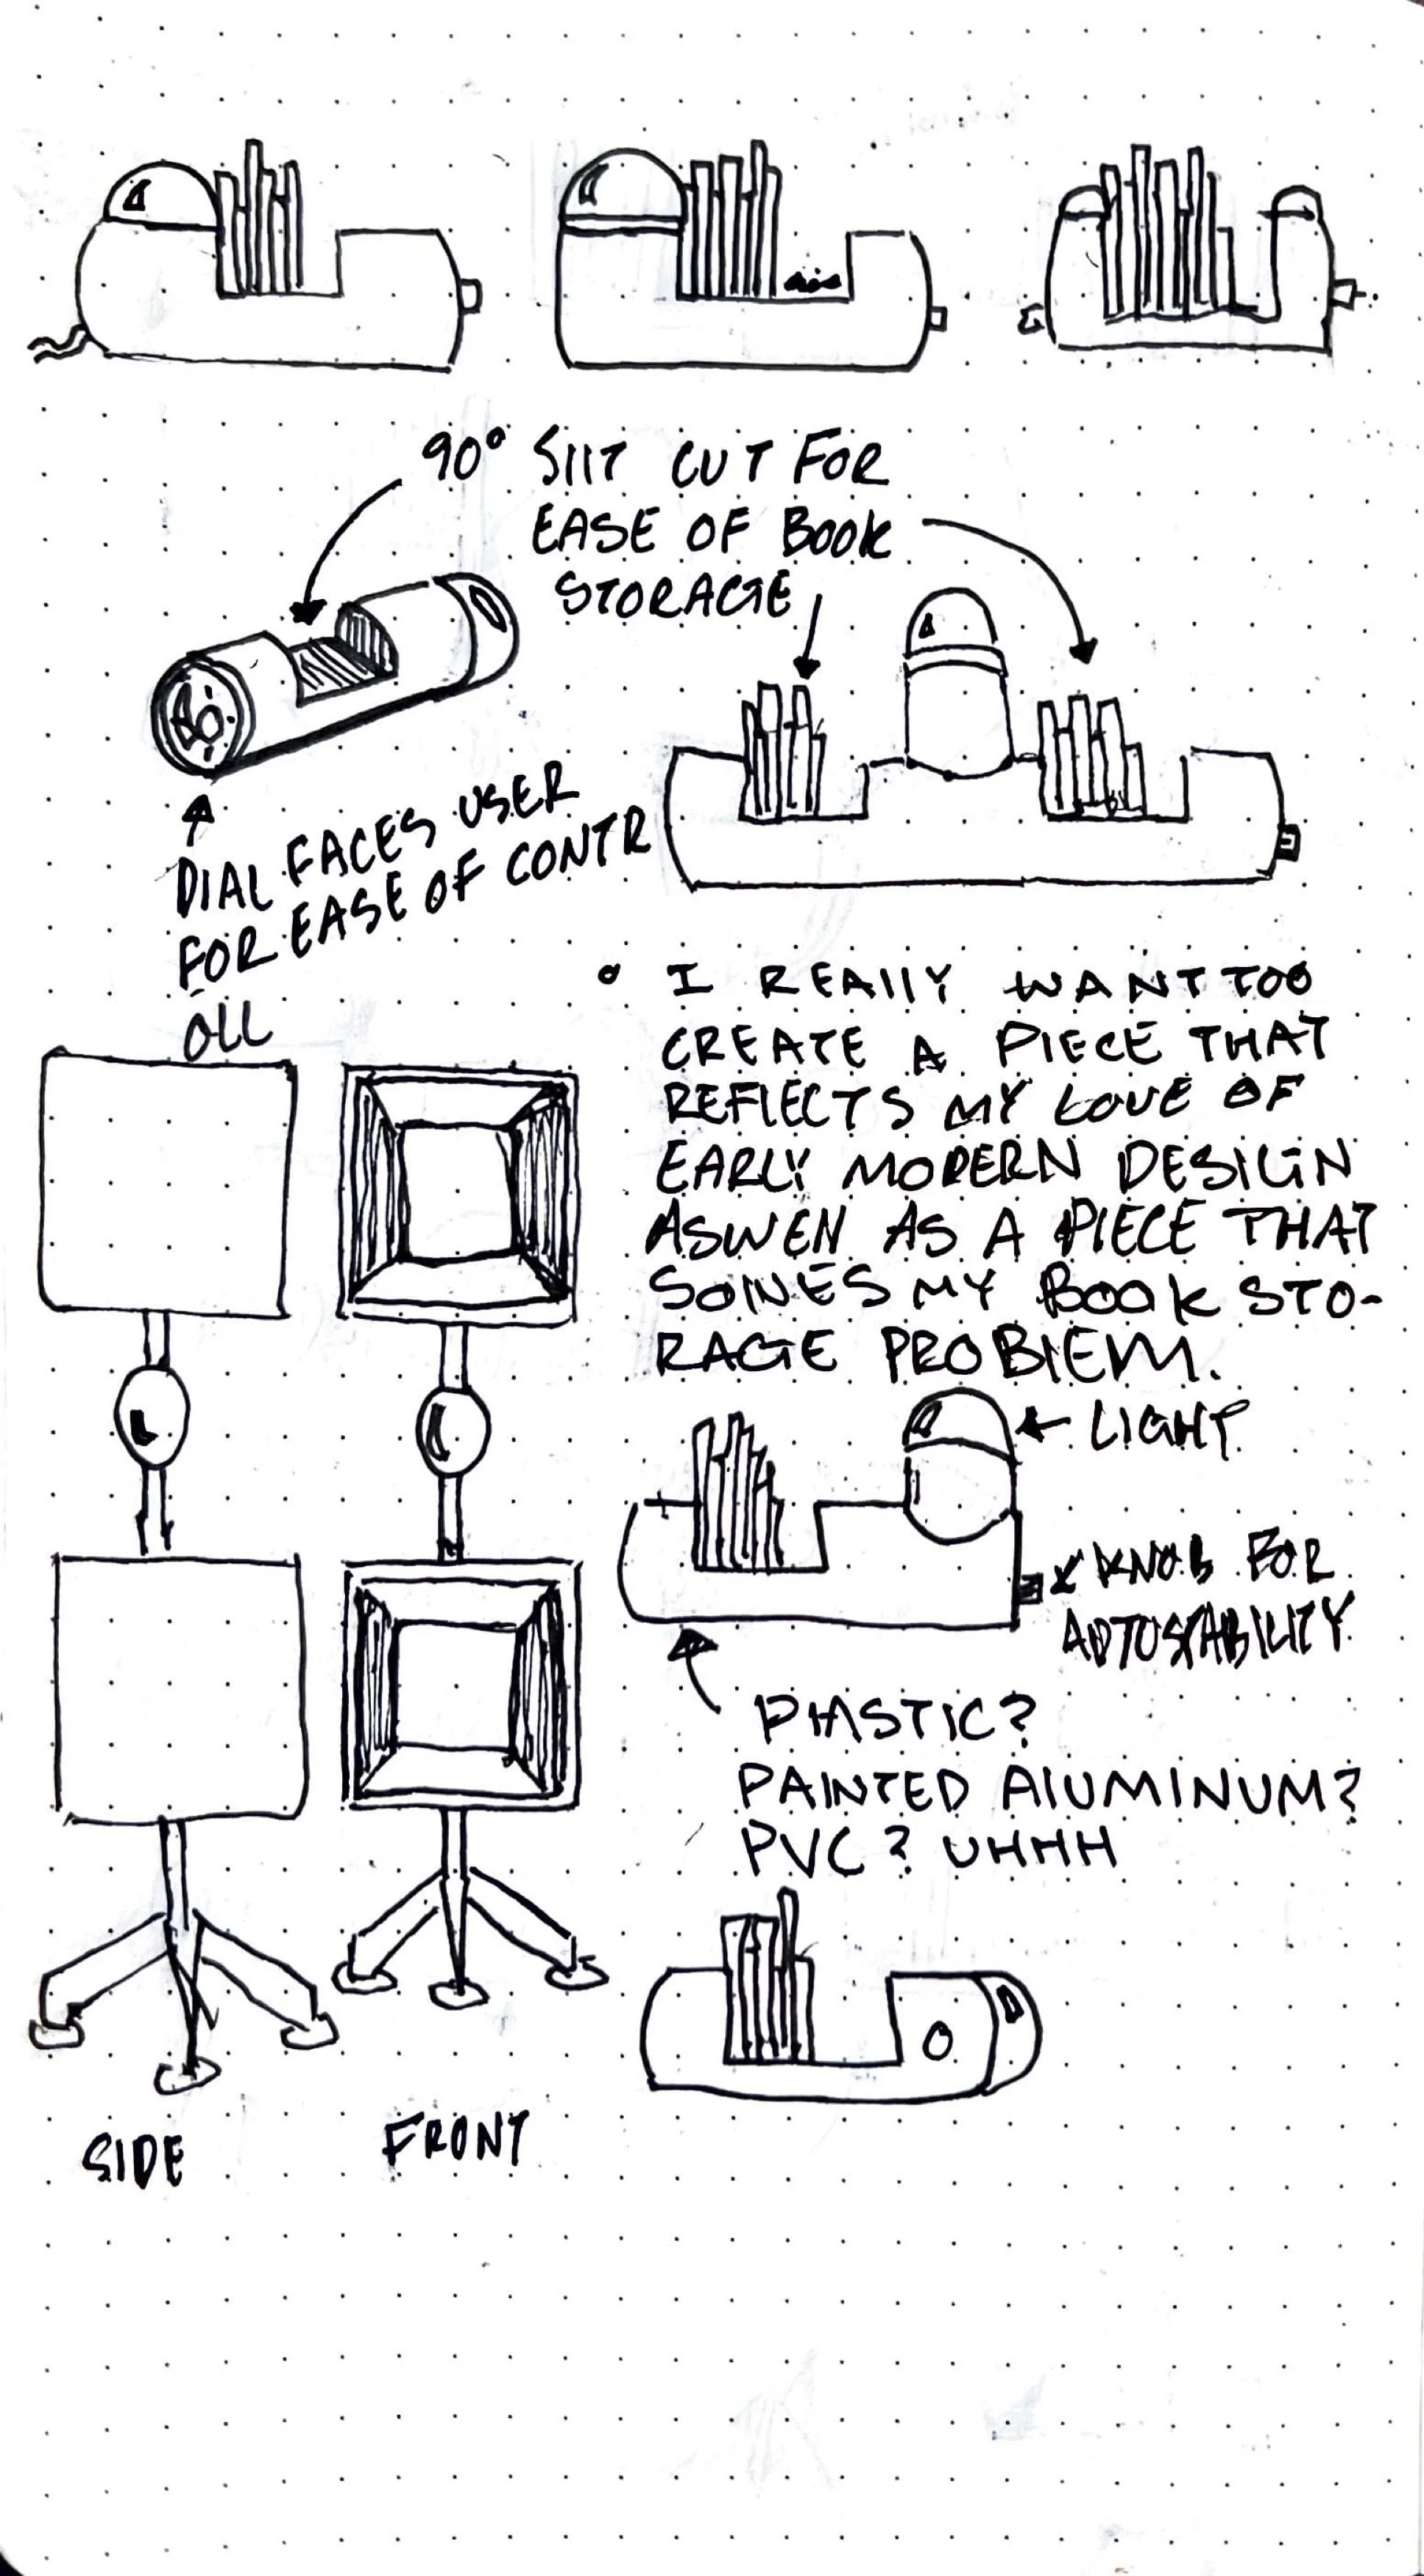 90° SLIT CUT FOR
EASE OF BOOK
STORAGE
DIAL FACES USER
FOR EASE OF CONTR
OLL
I REALLY WANT TOO
CREATE A PIECE THAT
REFLECTS MY LOVE OF
EARLY MODERN DESIGN
ASWELL AS A PIECE THAT
SOLVES MY BOOK STO-
RAGE PROBLEM.
← LIGHT
KNOB FOR
ADTUSTABILITY
PLASTIC?
PAINTED ALUMINUM?
PVC? UHHH
SIDE
FRONT